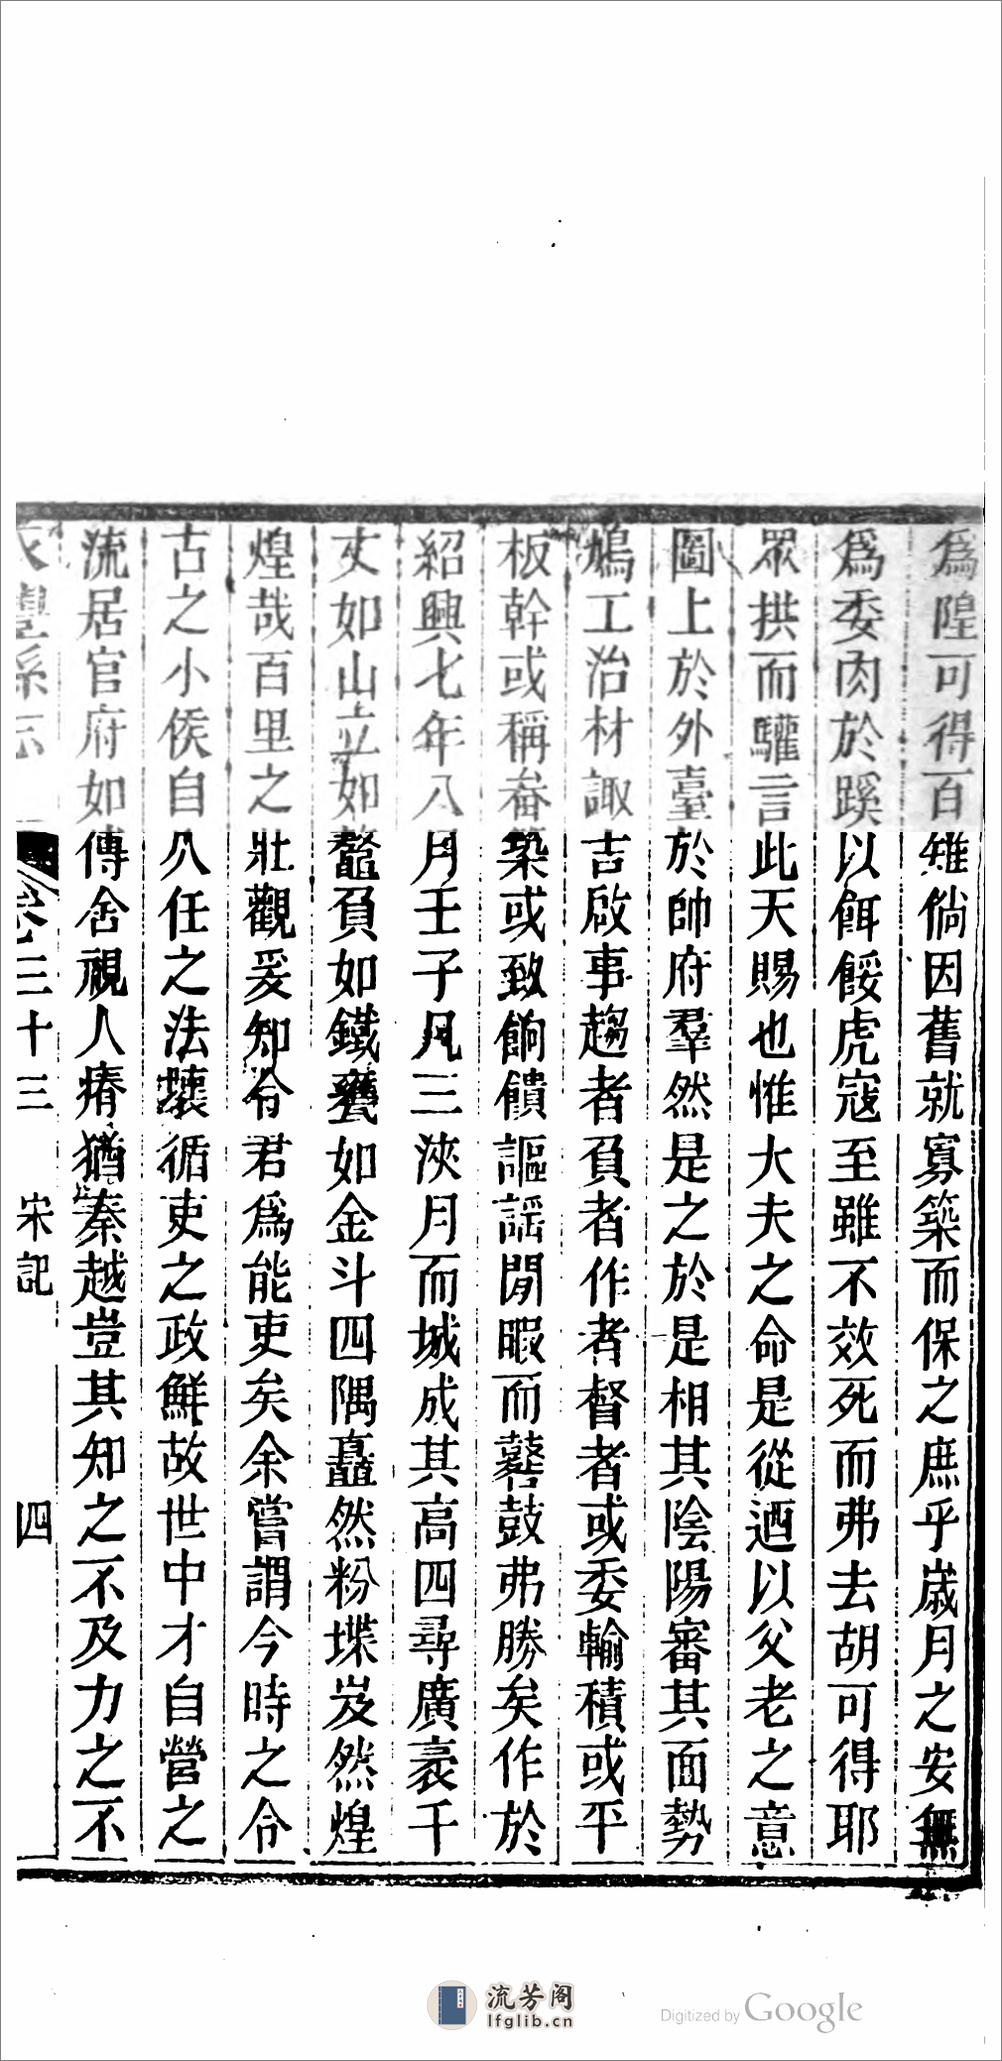 爲隍可得百雉倘因舊就寡築而保之庶乎歲月之安無
爲委肉於蹊以餌餒虎寇至雖不效死而弗去胡可得耶
眾拱而驩言此天賜也惟大夫之命是從迺以父老之意
圖上於外臺於帥府羣然是之於是相其陰陽審其面勢
鳩工治材諏吉啟事趨者負者作者督者或委輸積或平
板幹或稱畚築或致餉饋謳謡閒暇而鼛鼓弗勝矣作於
紹興七年八月壬子凡三浹月而城成其高四尋廣豪千
丈如山立如鼇負如鐵甕如金斗四隅矗然粉堞岌然煌
煌哉百里之壯觀爰知令君爲能吏矣余嘗謂今時之令
古之小侯自久任之法壞循吏之政鮮故世中才自營之
流居官府如傳舍視人瘠猶秦越豈其知之不及力之不
永豐縣志 卷三十三 宋記 四
流芳阁
lfglib.cn
Digitized by Google